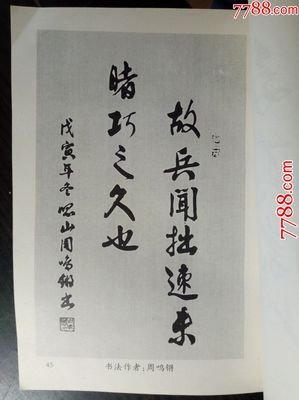 7788.com
故兵闻拙速未
睹巧之久也
戊寅年冬
山周鸣锵书
45
书法作者：周鸣锵
7788.com